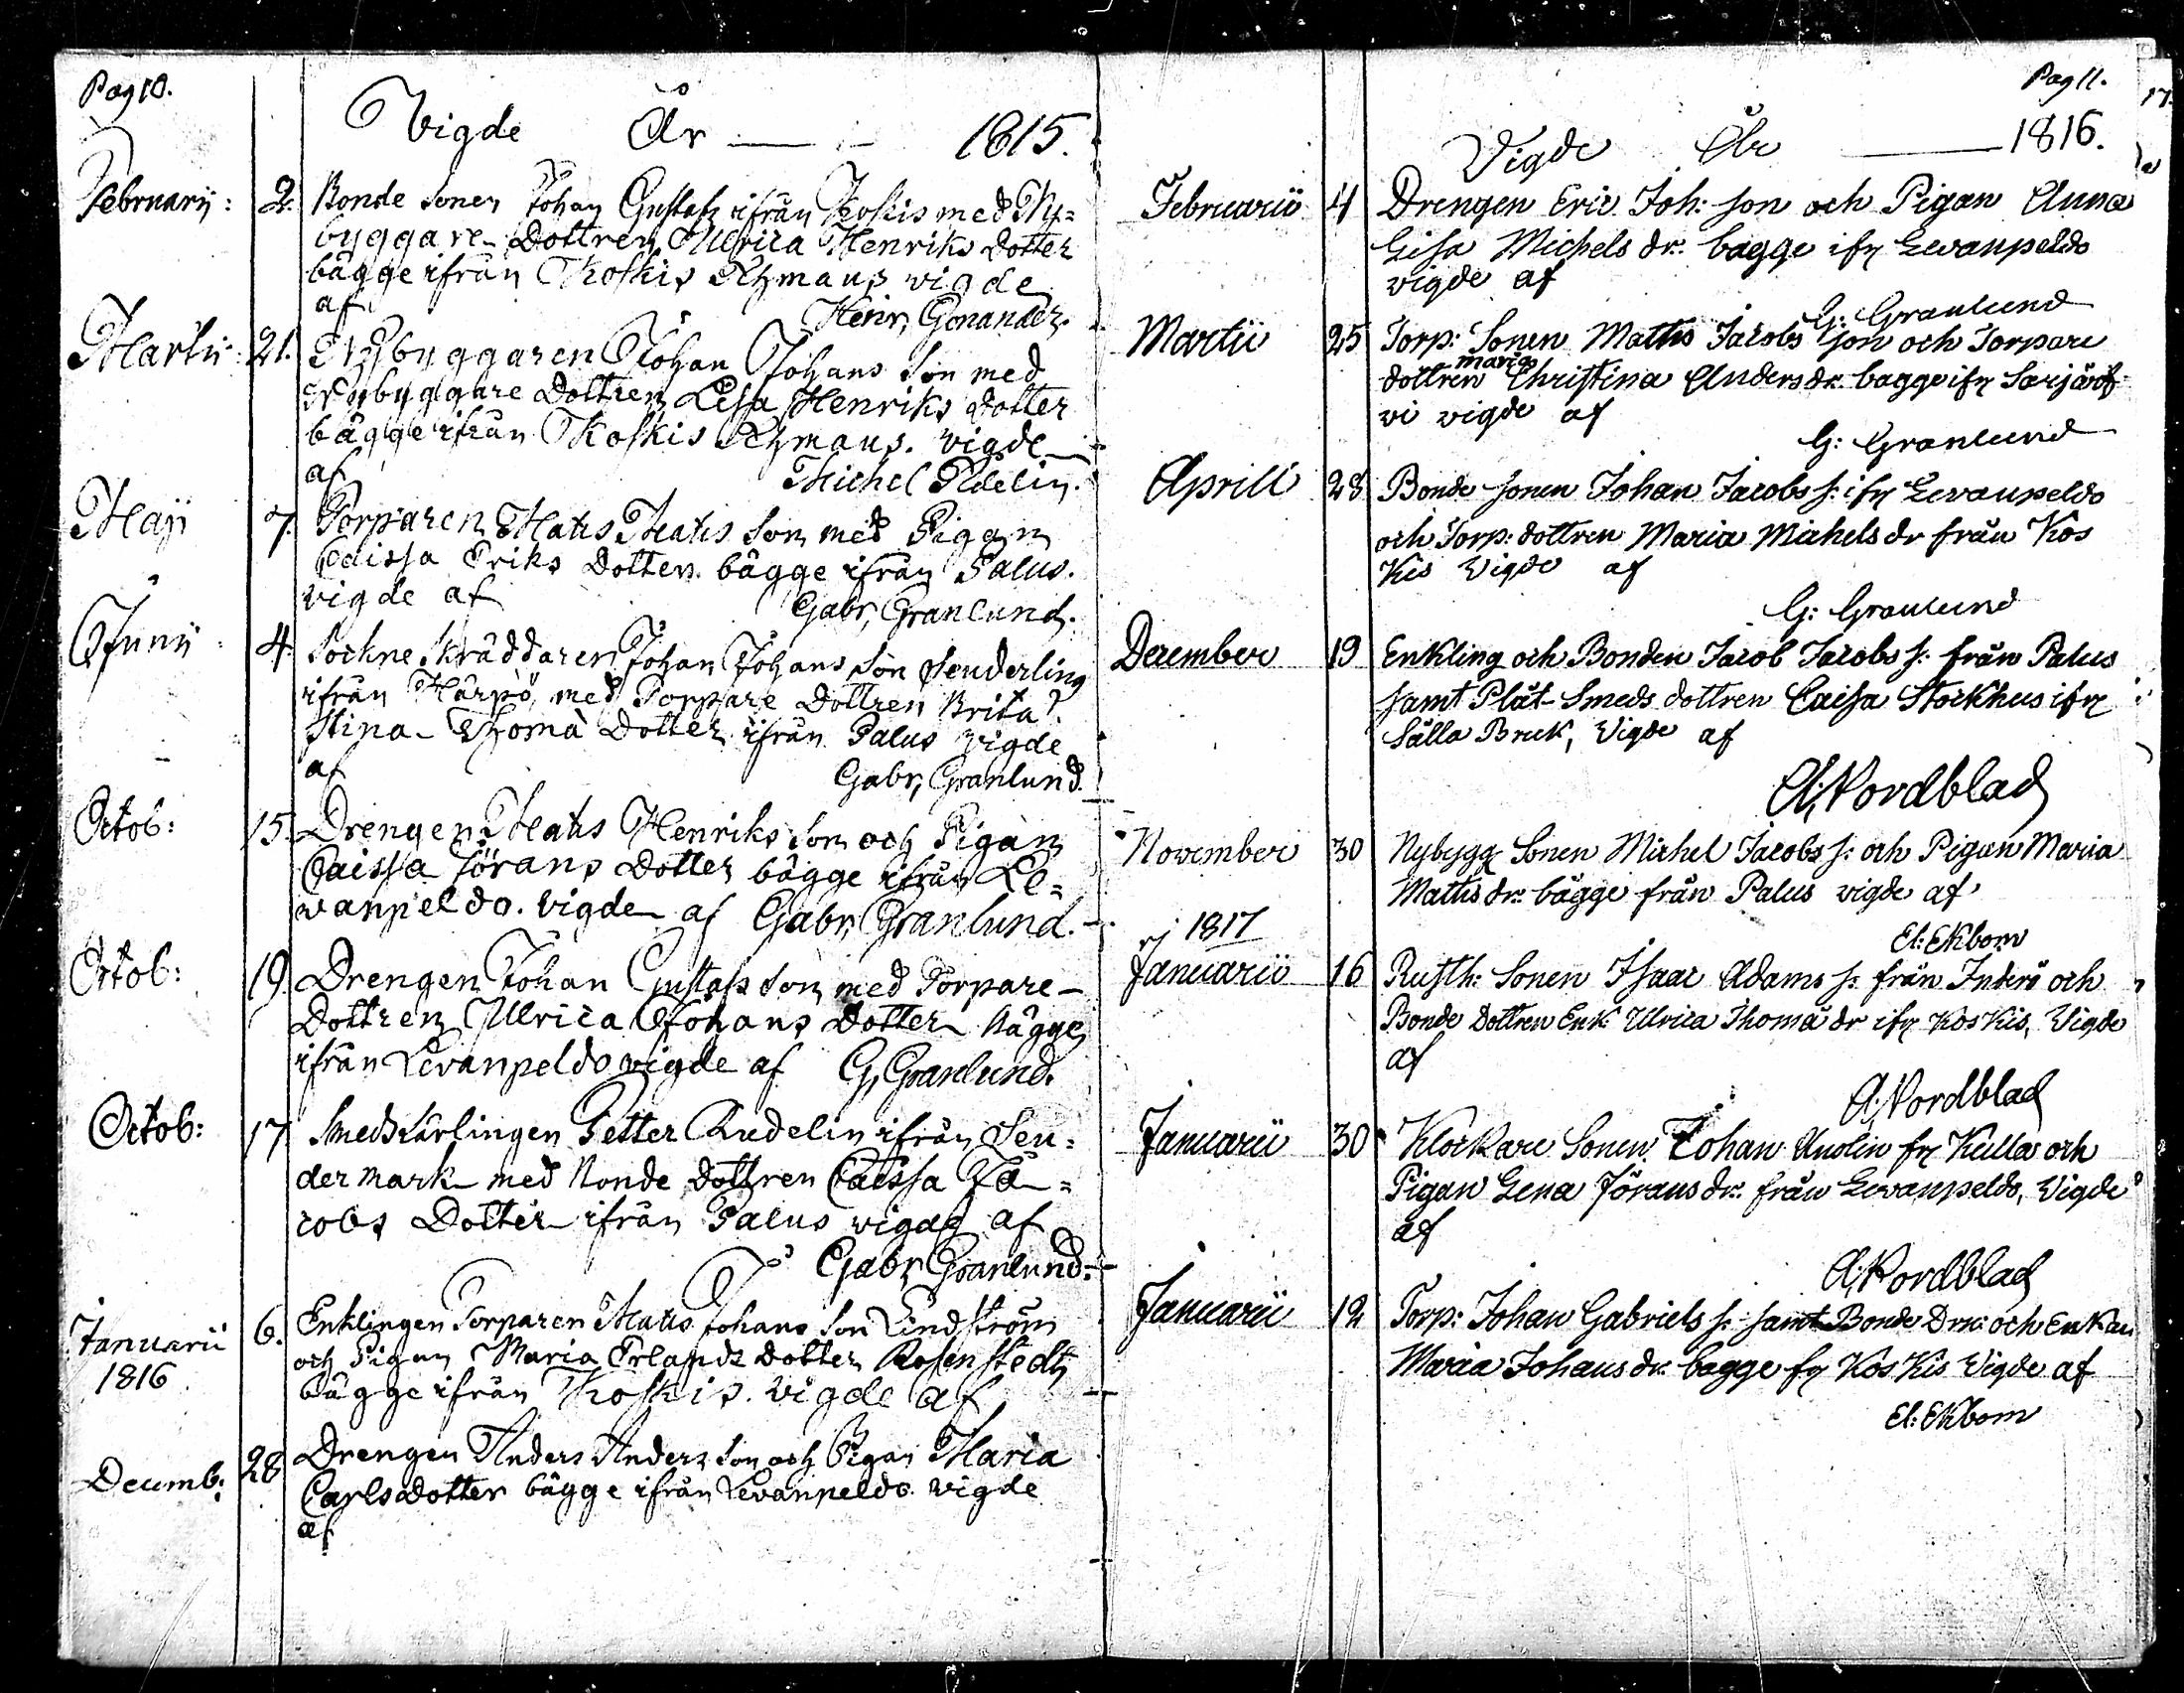 Pag 10.
Vigde År — 1815.
Februarij: 2. Bonde Sonen Johan Gustafs ifrån Koskis med Ny=
byggare Dottren Ulrica Henriks Dotter
bägge ifrån Koskis vigde
af Henr, Gonander.
Martii: 21. Nybyggaren Johan Johans Son med
Nybyggare Dottren Lisa Henriks Dotter
bägge ifrån Koskis vigde
af Michel Polviander
Maji 7. Torparen Matts Matts Son med Pigan
Caissa Eriks Dotter bägge ifrån Palus.
vigde af Gabr, Granlund.
Junij 4. Sockne Skräddaren Johan Johans Son Senderling
ifrån med Torpare Dottren Brita
Stina Thoma Dotter ifrån Palus vigde
af Gabr, Granlund.
Octob: 15. Drengen Matts Henriks Son och Pigan
Caissa Jörans Dotter bägge ifrån Le=
vanpeldo. Vigde af Gabr, Granlund.
Octob: 19. Drengen Johan Gustafs Son med Torpare
Dottren Ulrica Johans Dotter bägge
ifrån Levanpeldo vigde af G, Granlund.
Octob: 17 Petter Rudelin ifrån Sen=
dermark med Bonde Dottren Caissa Ja=
cobs Dotter ifrån Palus vigde af
Gabr, Granlund.
Januarii 6. Enklingen Torparen Matts Johans Son Lindström
1816 och Pigan Maria Erlands Dotter Rosenstedt
bägge ifrån Koskis. Vigde af
Decemb: 28 Drengen Anders Anders Son och Pigan Maria
Carlsdotter bägge ifrån Levanpeldo vigde
af
Pag 11.
Vigde År — 1816.
Februarii 4 Drengen Eric Joh: son och Pigan Anna
Lisa Michels dr: bägge ifr Levanpeldo
vigde af
G: Granlund
Martii 25 Torp: Sonen Matts Jacobs son och Torpare
maria
dottren Christina Anders dr: bagge ifr Särjärf
vi vigde af
G: Granlund
Aprill 28 Bonde sonen Johan Jacobs s: ifr Levanpeldo
och Torp: dottren Maria Michels dr från Kos
kis Vigde af
G: Granlund
December 19 Enkling och Bonden Jacob Jacobs s: från Palus
samt Plåt-Smeds dottren Caisa Stockhus ifr
Sälla Bruk, Vigde af
A: Nordblad
November 30 Nybygg Sonen Michel Jacobs s: och Pigan Maria
Matts dr: bägge från Palus vigde af
El: Ekbom
1817
Januarii 16 Rusth: Sonen Isaac Adams s: från Inderö och
Bonde Dottren Enk: Ulrica Thoma dr ifr Koskis, Vigde
af
A: Nordblad
Januarii 30 Klockare Sonen Johan Anolin fr Kulla och
Pigan Lena Jörans dr: från Levanpeldo, Vigde
af
A: Nordblad
Januarii 12 Torp: Johan Gabriels s: samt Bonde Drn: och Enkan
Maria Johans dr: bägge fr Koskis Vigde af
El: Ekbom